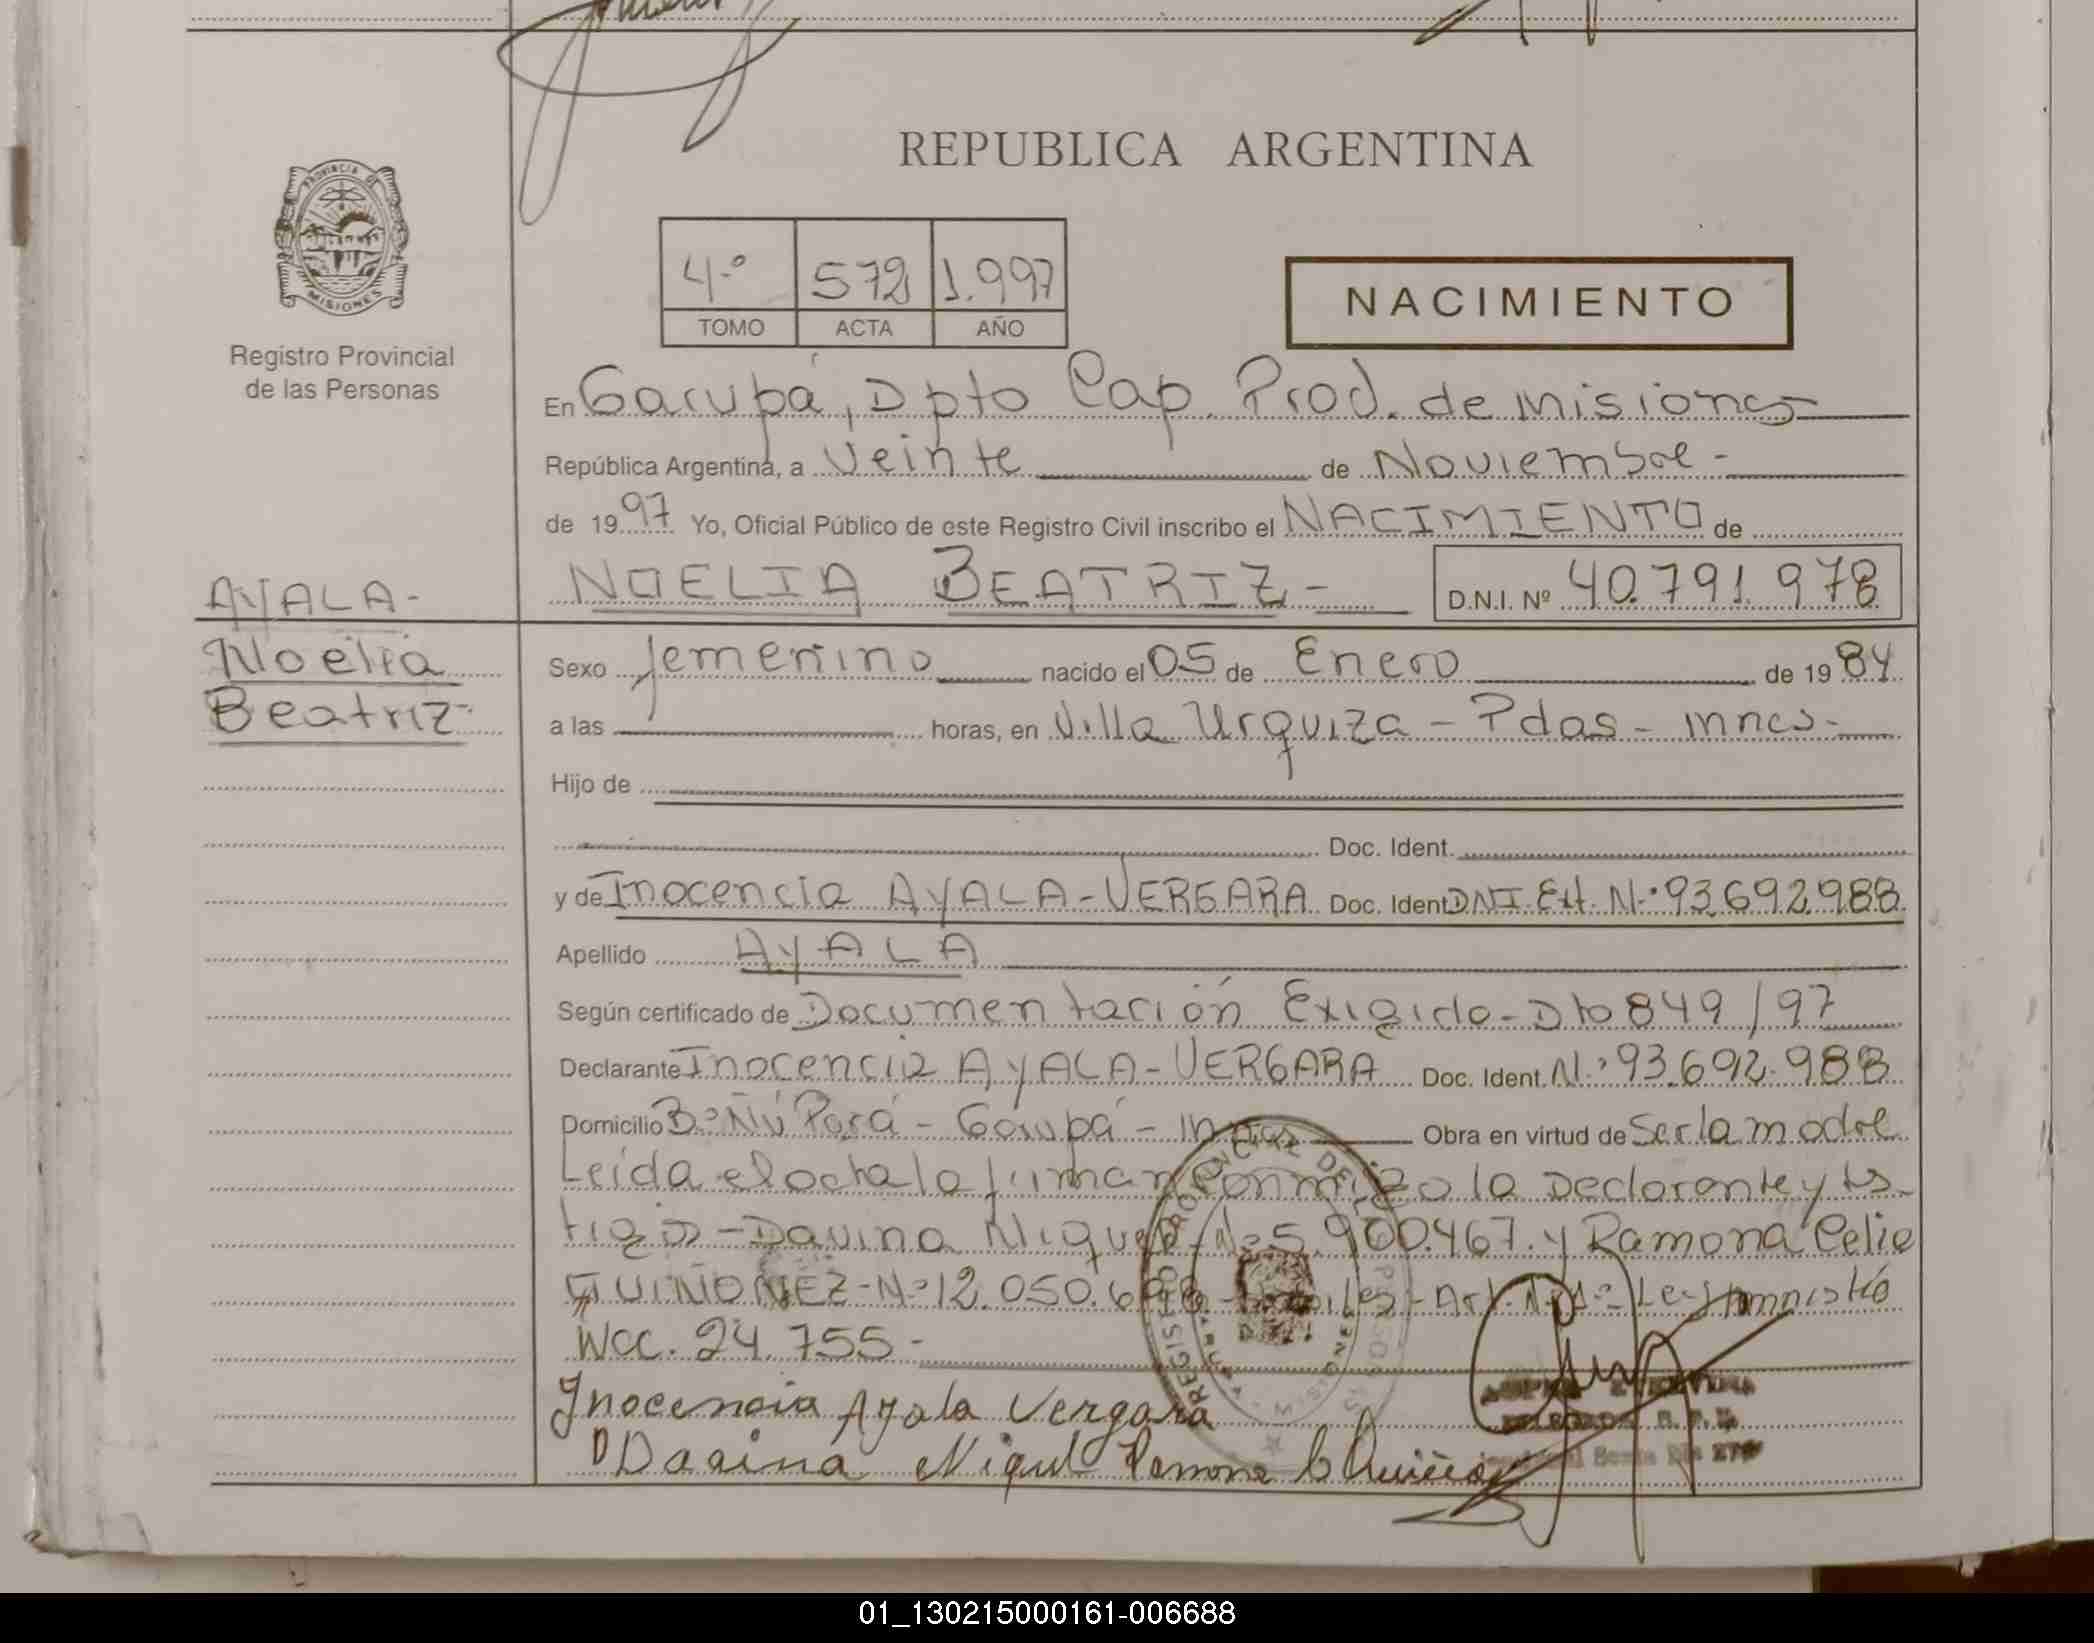 REPUBLICA ARGENTINA
PROVINCIA DE
MISIONES
Registro Provincial
de las Personas
4.º 572 1.997
TOMO ACTA AÑO
NACIMIENTO
En Garupá, Dpto Cap. Prov. de Misiones
República Argentina, a Veinte de Noviembre -
de 1997 Yo, Oficial Público de este Registro Civil inscribo el NACIMIENTO de
AYALA-
NOELIA BEATRIZ - D.N.I. Nº 40.791.978
Noelia
Beatriz-
Sexo femenino nacido el 05 de Enero de 1984
a las horas, en Villa Urquiza - Pdas - mnes-
Hijo de
Doc. Ident.
y de Inocencia AYALA-VERGARA Doc. Ident DNI. Ext. N.º 93.692.988
Apellido AYALA
Según certificado de Documentación Exigida - Dto 849/97
Declarante Inocencia AYALA-VERGARA Doc. Ident. N.º 93.692.988
Domicilio B.º Ñú Porá - Garupá - Obra en virtud de Ser la madre
Leida el acta la firman conmigo la Declarante y tes-
tigos - Davina Miguel - Nº 5.900.467. y Ramona Celia
QUIÑONEZ - Nº 12.050. - Art. Ley
WCC. 24.755 -
Inocencia Ayala Vergara
Davina Miguel Ramona C
REGISTRO PROVINCIAL DE LAS PERSONAS
01_130215000161-006688